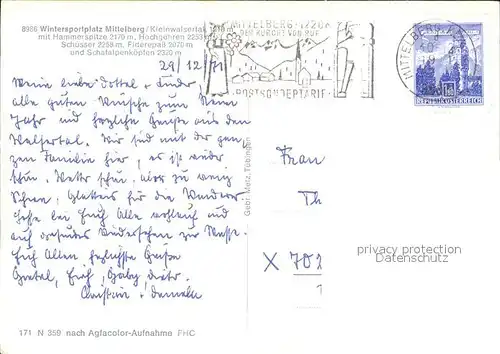 8986 Wintersportplatz Mittelberg / Kleinwalsertal, 1220 m
mit Hammerspitze 2170 m, Hochgehren 2253 m
Schüsser 2259 m, Fiderepaß 2070 m
und Schafalpenköpfen 2320 m
MITTELBERG 1220 M
DER KURORT VON RUF
POSTSONDERTARIF
MITTELBERG
REPUBLIK ÖSTERREICH
29/12/71
Meine liebe Dottel + Kinder
Alle guten Wünsche zum Neuen
Jahr und herzliche Grüße aus dem
Walsertal. Wir sind mit der gan
zen Familie hier, es ist wieder
schön. Wetter schön, aber zu wenig
Schnee,
Alle wohlauf und
auf gesundes Wiedersehen zur Messe.
Euch Allen herzlichste Grüße
Gretel, Erich, Gaby, Dieter
Christine + Danielle
Gebr. Metz, Tübingen
Frau
Th
X 702
1
privacy protection
Datenschutz
171 N 359 nach Agfacolor-Aufnahme FHC